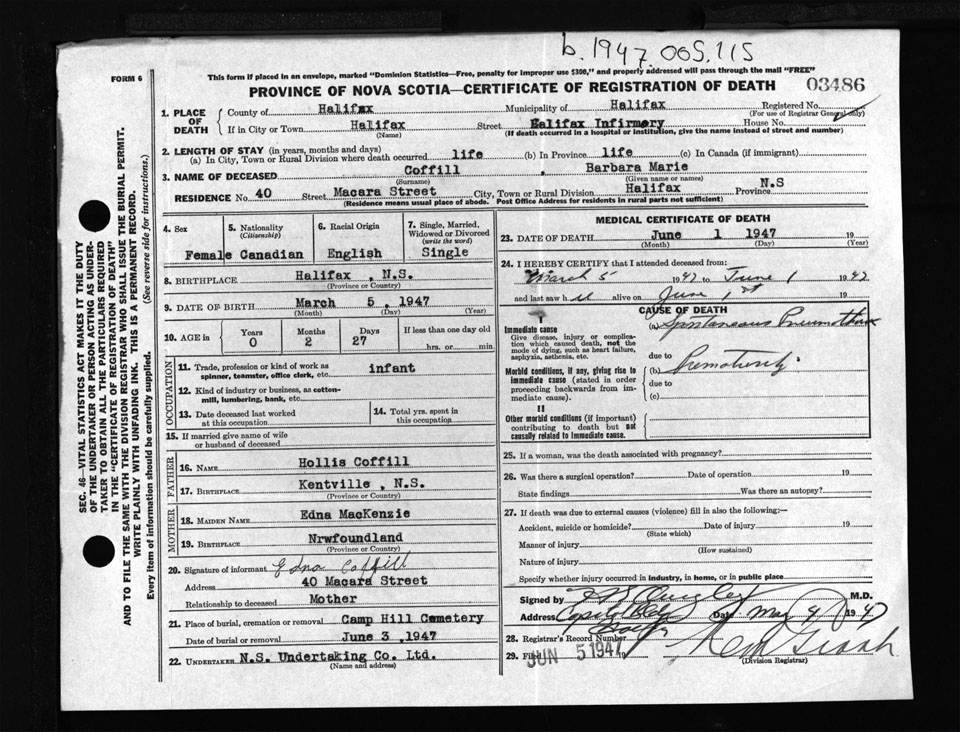 b.1947.005.115
FORM 6
This form if placed in an envelope, marked "Dominion Statistics—Free, penalty for improper use $300," and properly addressed will pass through the mail "FREE"
PROVINCE OF NOVA SCOTIA—CERTIFICATE OF REGISTRATION OF DEATH
03486
1. PLACE OF DEATH
County of Halifax Municipality of Halifax Registered No.
(For use of Registrar General only)
If in City or Town Halifax Street Ealifax Infirmory House No.
(Name) (If death occurred in a hospital or institution, give the name instead of street and number)
2. LENGTH OF STAY (in years, months and days)
(a) In City, Town or Rural Division where death occurred life (b) In Province life (c) In Canada (if immigrant)
3. NAME OF DECEASED Coffill Barbara Marie
(Surname) (Given name or names)
RESIDENCE No. 40 Street Macara Street City, Town or Rural Division Halifax Province N.S
(Residence means usual place of abode. Post Office Address for residents in rural parts not sufficient)
4. Sex Female
5. Nationality (Citizenship) Canadian
6. Racial Origin English
7. Single, Married, Widowed or Divorced (write the word) Single
8. BIRTHPLACE Halifax , N.S.
(Province or Country)
9. DATE OF BIRTH March 5, 1947
(Month) (Day) (Year)
10. AGE in Years Months Days If less than one day old
0 2 27 hrs. or min.
OCCUPATION
11. Trade, profession or kind of work as spinner, teamster, office clerk, etc. infant
12. Kind of industry or business, as cotton-mill, lumbering, bank, etc.
13. Date deceased last worked at this occupation
14. Total yrs. spent in this occupation
15. If married give name of wife or husband of deceased
FATHER
16. NAME Hollis Coffill
17. BIRTHPLACE Kentville , N.S.
(Province or Country)
MOTHER
18. MAIDEN NAME Edna MacKenzie
19. BIRTHPLACE Nrwfoundland
(Province or Country)
20. Signature of informant Edna Coffill
Address 40 Macara Street
Relationship to deceased Mother
21. Place of burial, cremation or removal Camp Hill Cemetery
Date of burial or removal June 3 ,1947
22. UNDERTAKER N.S. Undertaking Co. Ltd.
(Name and address)
MEDICAL CERTIFICATE OF DEATH
23. DATE OF DEATH June 1 1947 19
(Month) (Day) (Year)
24. I HEREBY CERTIFY that I attended deceased from:
March 5 1947 to June 1 1947
and last saw h er alive on June 1st 19
CAUSE OF DEATH
I
Immediate cause
Give disease, injury or complication which caused death, not the mode of dying, such as heart failure, asphyxia, asthenia, etc.
(a) Spontaneous Pneumothorax
due to
Morbid conditions, if any, giving rise to immediate cause (stated in order proceeding backwards from immediate cause).
(b) Prematurity
due to
(c)
II
Other morbid conditions (if important) contributing to death but not causally related to immediate cause.
25. If a woman, was the death associated with pregnancy?
26. Was there a surgical operation? Date of operation 19
State findings Was there an autopsy?
27. If death was due to external causes (violence) fill in also the following:—
Accident, suicide or homicide? Date of injury 19
(State which)
Manner of injury
(How sustained)
Nature of injury
Specify whether injury occurred in industry, in home, or in public place
Signed by M.D.
Address Date May 4 1947
28. Registrar's Record Number
29. Filed JUN 5 1947 19
(Division Registrar)
SEC. 46—VITAL STATISTICS ACT MAKES IT THE DUTY
OF THE UNDERTAKER OR PERSON ACTING AS UNDERTAKER TO OBTAIN ALL THE PARTICULARS REQUIRED
IN THE "CERTIFICATE OF REGISTRATION OF DEATH"
AND TO FILE THE SAME WITH THE DIVISION REGISTRAR WHO SHALL ISSUE THE BURIAL PERMIT.
WRITE PLAINLY WITH UNFADING INK. THIS IS A PERMANENT RECORD.
Every item of information should be carefully supplied. (See reverse side for instructions.)